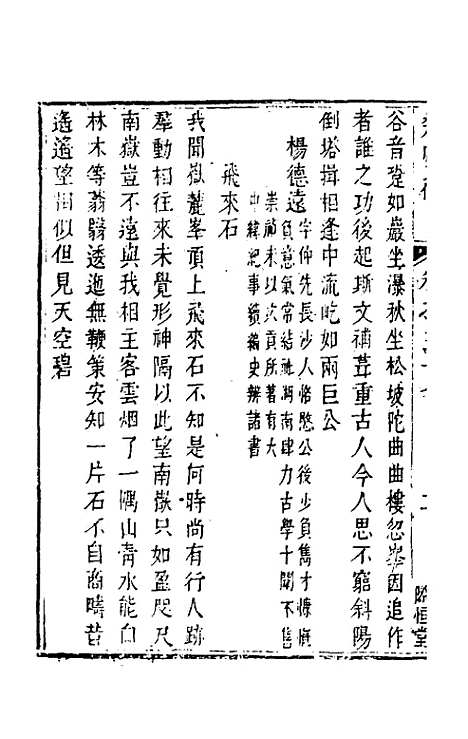 谷音蹔如巖坐瀑狄坐松坡陀曲曲樓忽峯因追作
者誰之功後起斯文補葺重古人今人思不窮斜陽
倒塔揖相逢中流吃如兩巨公
楊德遠
字仲先長沙人恪愍公後少負雋才慷慨
負意氣常結社湖南肆力古學十聞不售
崇禎末以次貢所著有大
中緯紀事續編史辨諸書
飛來石
我聞嶽麓峯頂上飛來石不知是何時尚有行人跡
羣動相往來未覺形神隔以此望南嶽只如盈咫尺
南嶽豈不遠與我相主客雲烟了一隅山靑水能白
林木等蓊翳透迤無鞭策安知一片石不自商疇昔
遙遙望相似但見天空碧
臨恒堂